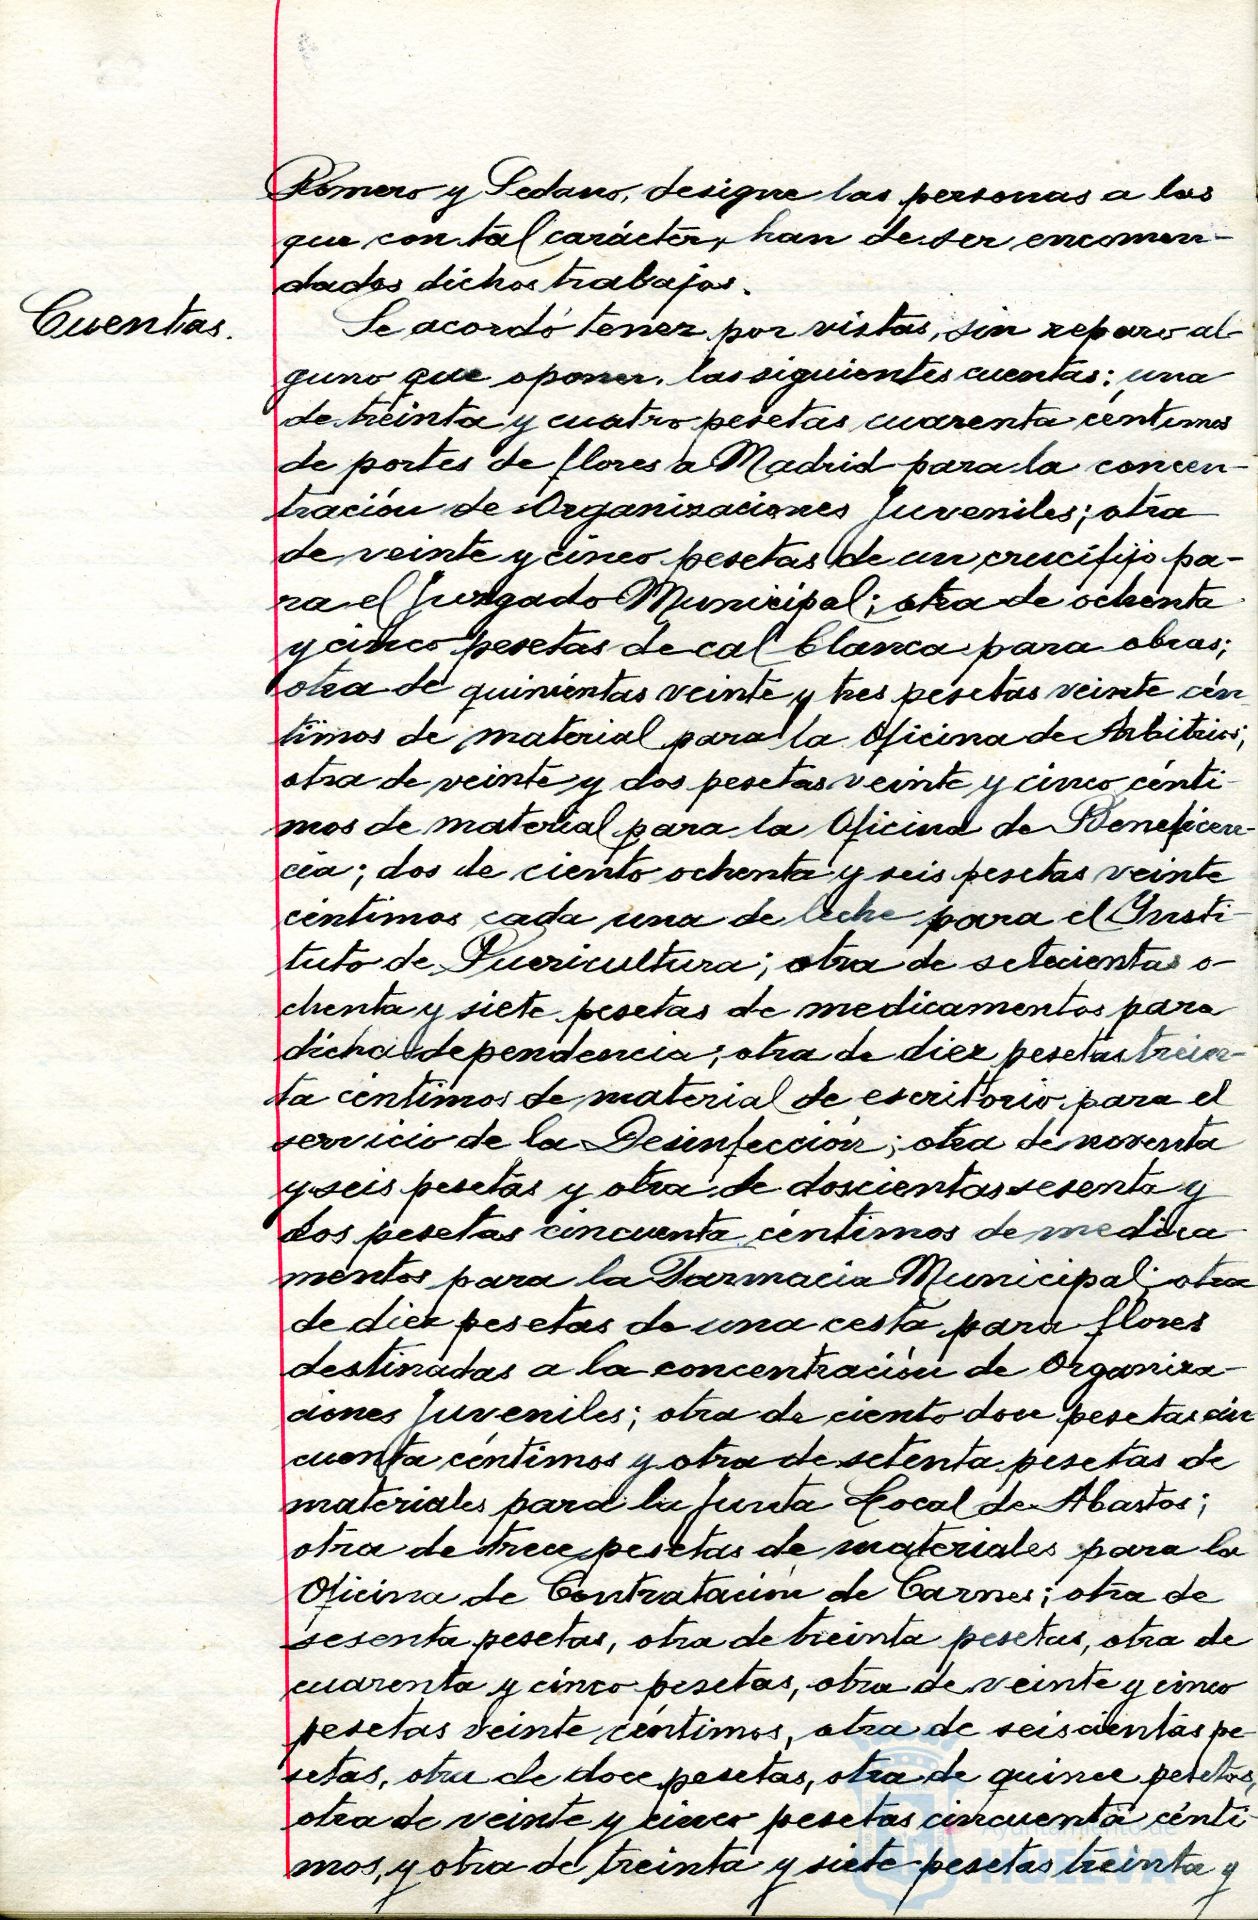 Romero y Sedano, designe las personas a las
que con tal carácter, han de ser encomen-
dados dichos trabajos.
Cuentas.
Se acordó tener por vistas, sin reparo al-
guno que oponer, las siguientes cuentas: una
de treinta y cuatro pesetas cuarenta céntimos
de portes de flores a Madrid para la concen-
tración de Organizaciones Juveniles; otra
de veinte y cinco pesetas de un crucifijo pa-
ra el Juzgado Municipal; otra de ochenta
y cinco pesetas de cal blanca para obras;
otra de quinientas veinte y tres pesetas veinte cén
timos de material para la Oficina de Arbitrios;
otra de veinte y dos pesetas veinte y cinco cénti-
mos de material para la Oficina de Beneficen-
cia; dos de ciento ochenta y seis pesetas veinte
céntimos cada una de leche para el Insti-
tuto de Puericultura; otra de setecientas o-
chenta y siete pesetas de medicamentos para
dicha dependencia; otra de diez pesetas trein-
ta céntimos de material de escritorio para el
servicio de la Desinfección; otra de noventa
y seis pesetas y otra de doscientas sesenta y
dos pesetas cincuenta céntimos de medica
mentos para la Farmacia Municipal; otra
de diez pesetas de una cesta para flores
destinadas a la concentración de Organiza-
ciones Juveniles; otra de ciento doce pesetas cin
cuenta céntimos y otra de setenta pesetas de
materiales para la Junta Local de Abastos;
otra de trece pesetas de materiales para la
Oficina de Contratación de Carnes; otra de
sesenta pesetas, otra de treinta pesetas, otra de
cuarenta y cinco pesetas, otra de veinte y cinco
pesetas veinte céntimos, otra de seiscientas pe
setas, otra de doce pesetas, otra de quince pesetas,
otra de veinte y cinco pesetas cincuenta cénti-
mos, y otra de treinta y siete pesetas treinta y
Ayuntamiento de
HUELVA